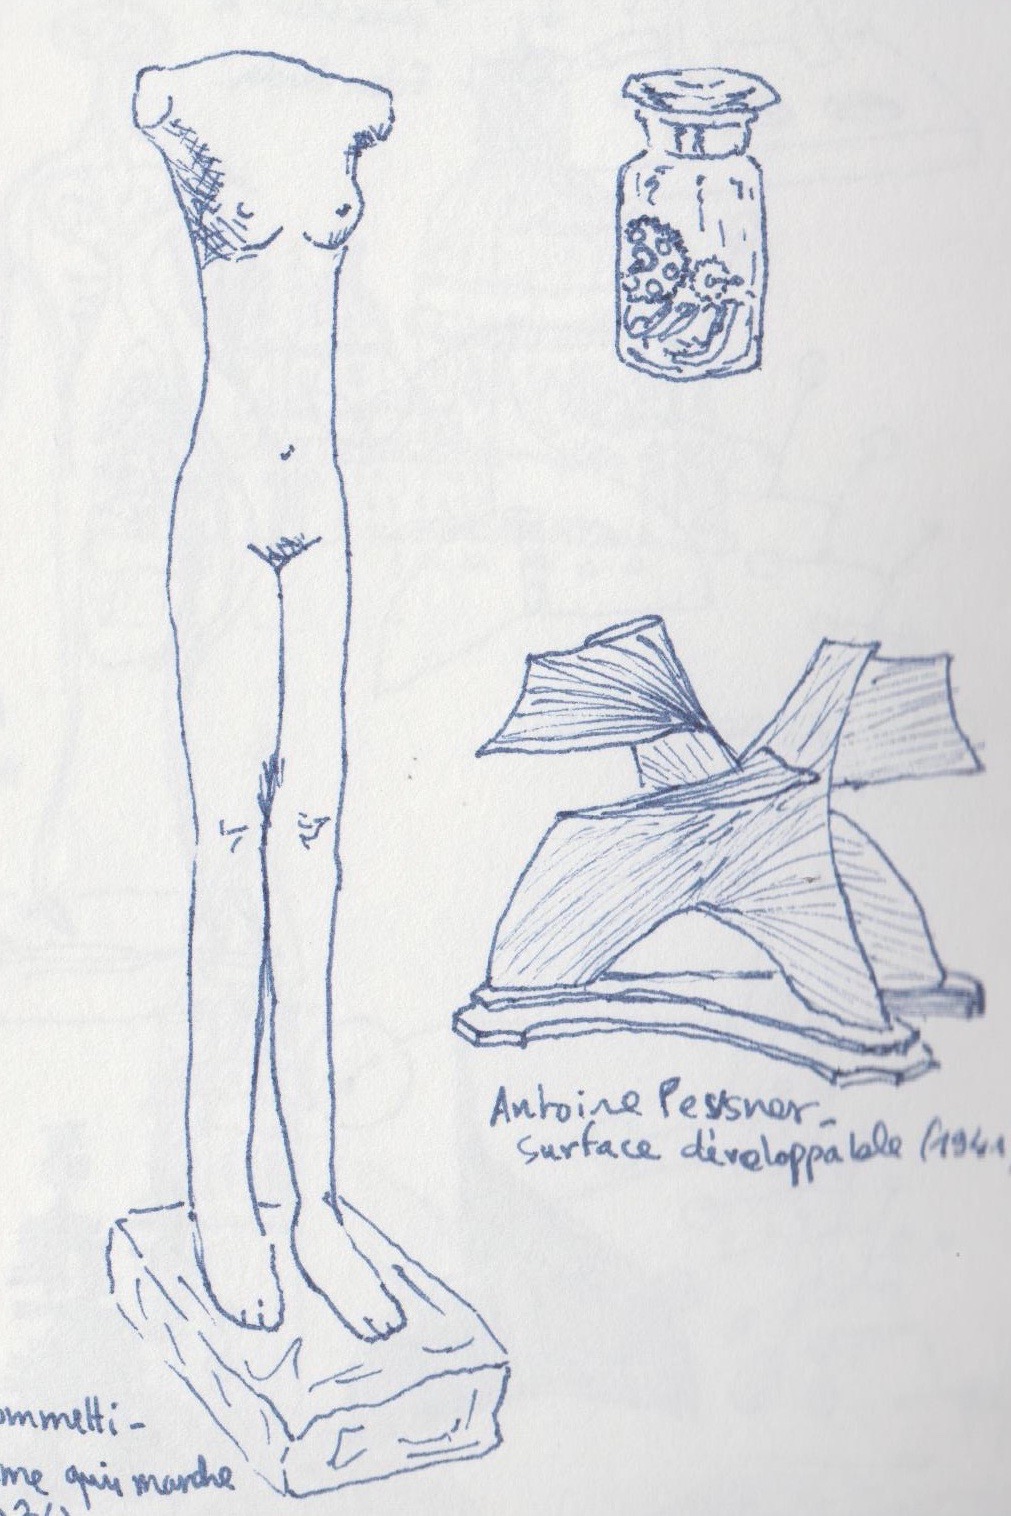 Antoine Pessner_
Surface développable (1941
ommetti -
me qui marche